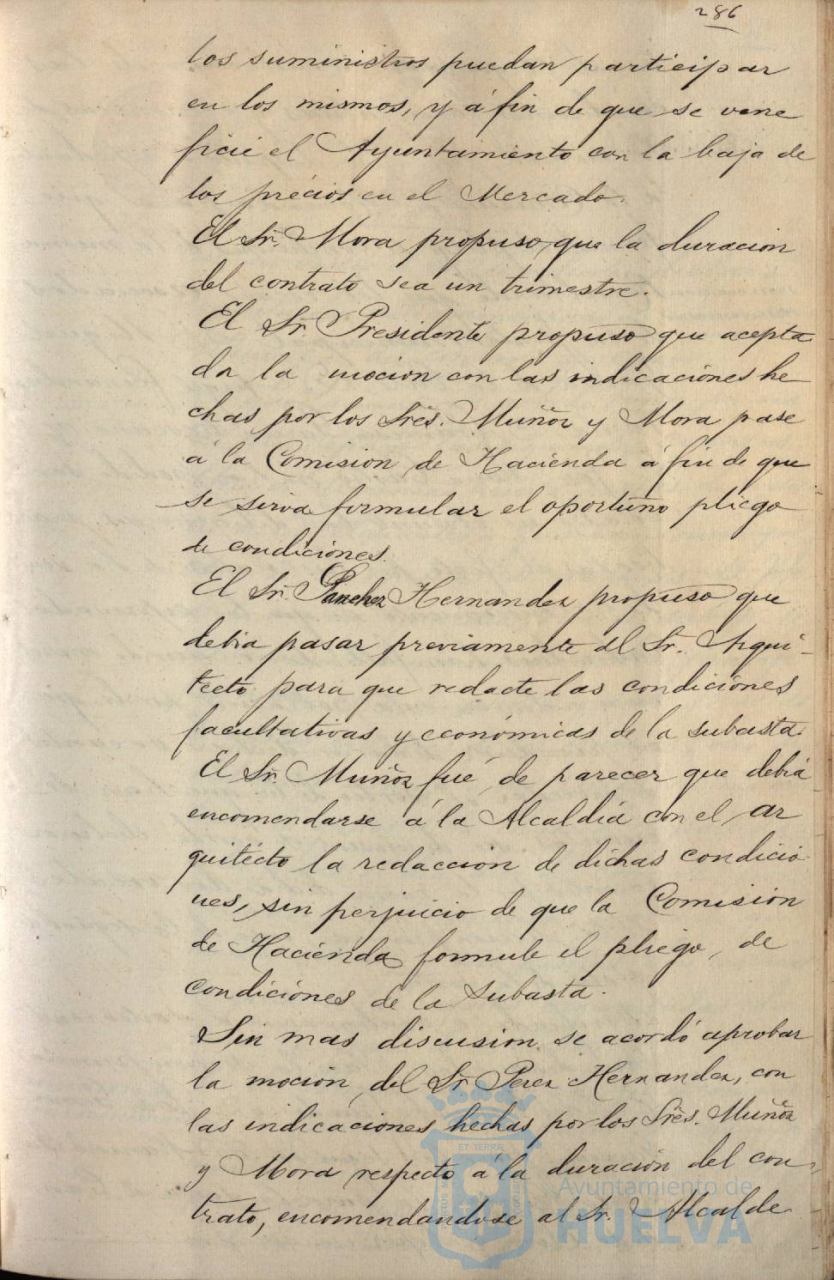 286
los suministros puedan participar
en los mismos, y á fin de que se vene
ficie el Ayuntamiento con la baja de
los précios en el Mercado.
El Sr. Mora propuso, que la duracion
del contrato sea un trimestre.
El Sr. Presidente propuso que acepta
da la mocion con las indicaciónes he
chas por los Srēs. Muñoz y Mora pase
á la Comision de Haciénda á fin de que
se sirva formular el oportuno pliego
de condiciónes.
El Sr. Sanchez Hernandez propuso que
debia pasar previamente al Sr. Arqui-
tecto para que redacte las condiciónes
facultativas y económicas de la subasta.
El Sr. Muñoz fué de parecer que debiá
encomendarse á la Alcaldiá con el ar
quitécto la redacción de dichas condicio
nes, sin perjuicio de que la Comisión
de Haciénda formule el pliego, de
condiciónes de la Subasta.
Sin mas discusion se acordó aprobar
la moción del Sr. Perez Hernandez, con
las indicaciónes hechas por los Srēs. Muñoz
y Mora respecto á la duración del con-
trato, encomendandose al Sr. Alcalde
Ayuntamiento de
HUELVA